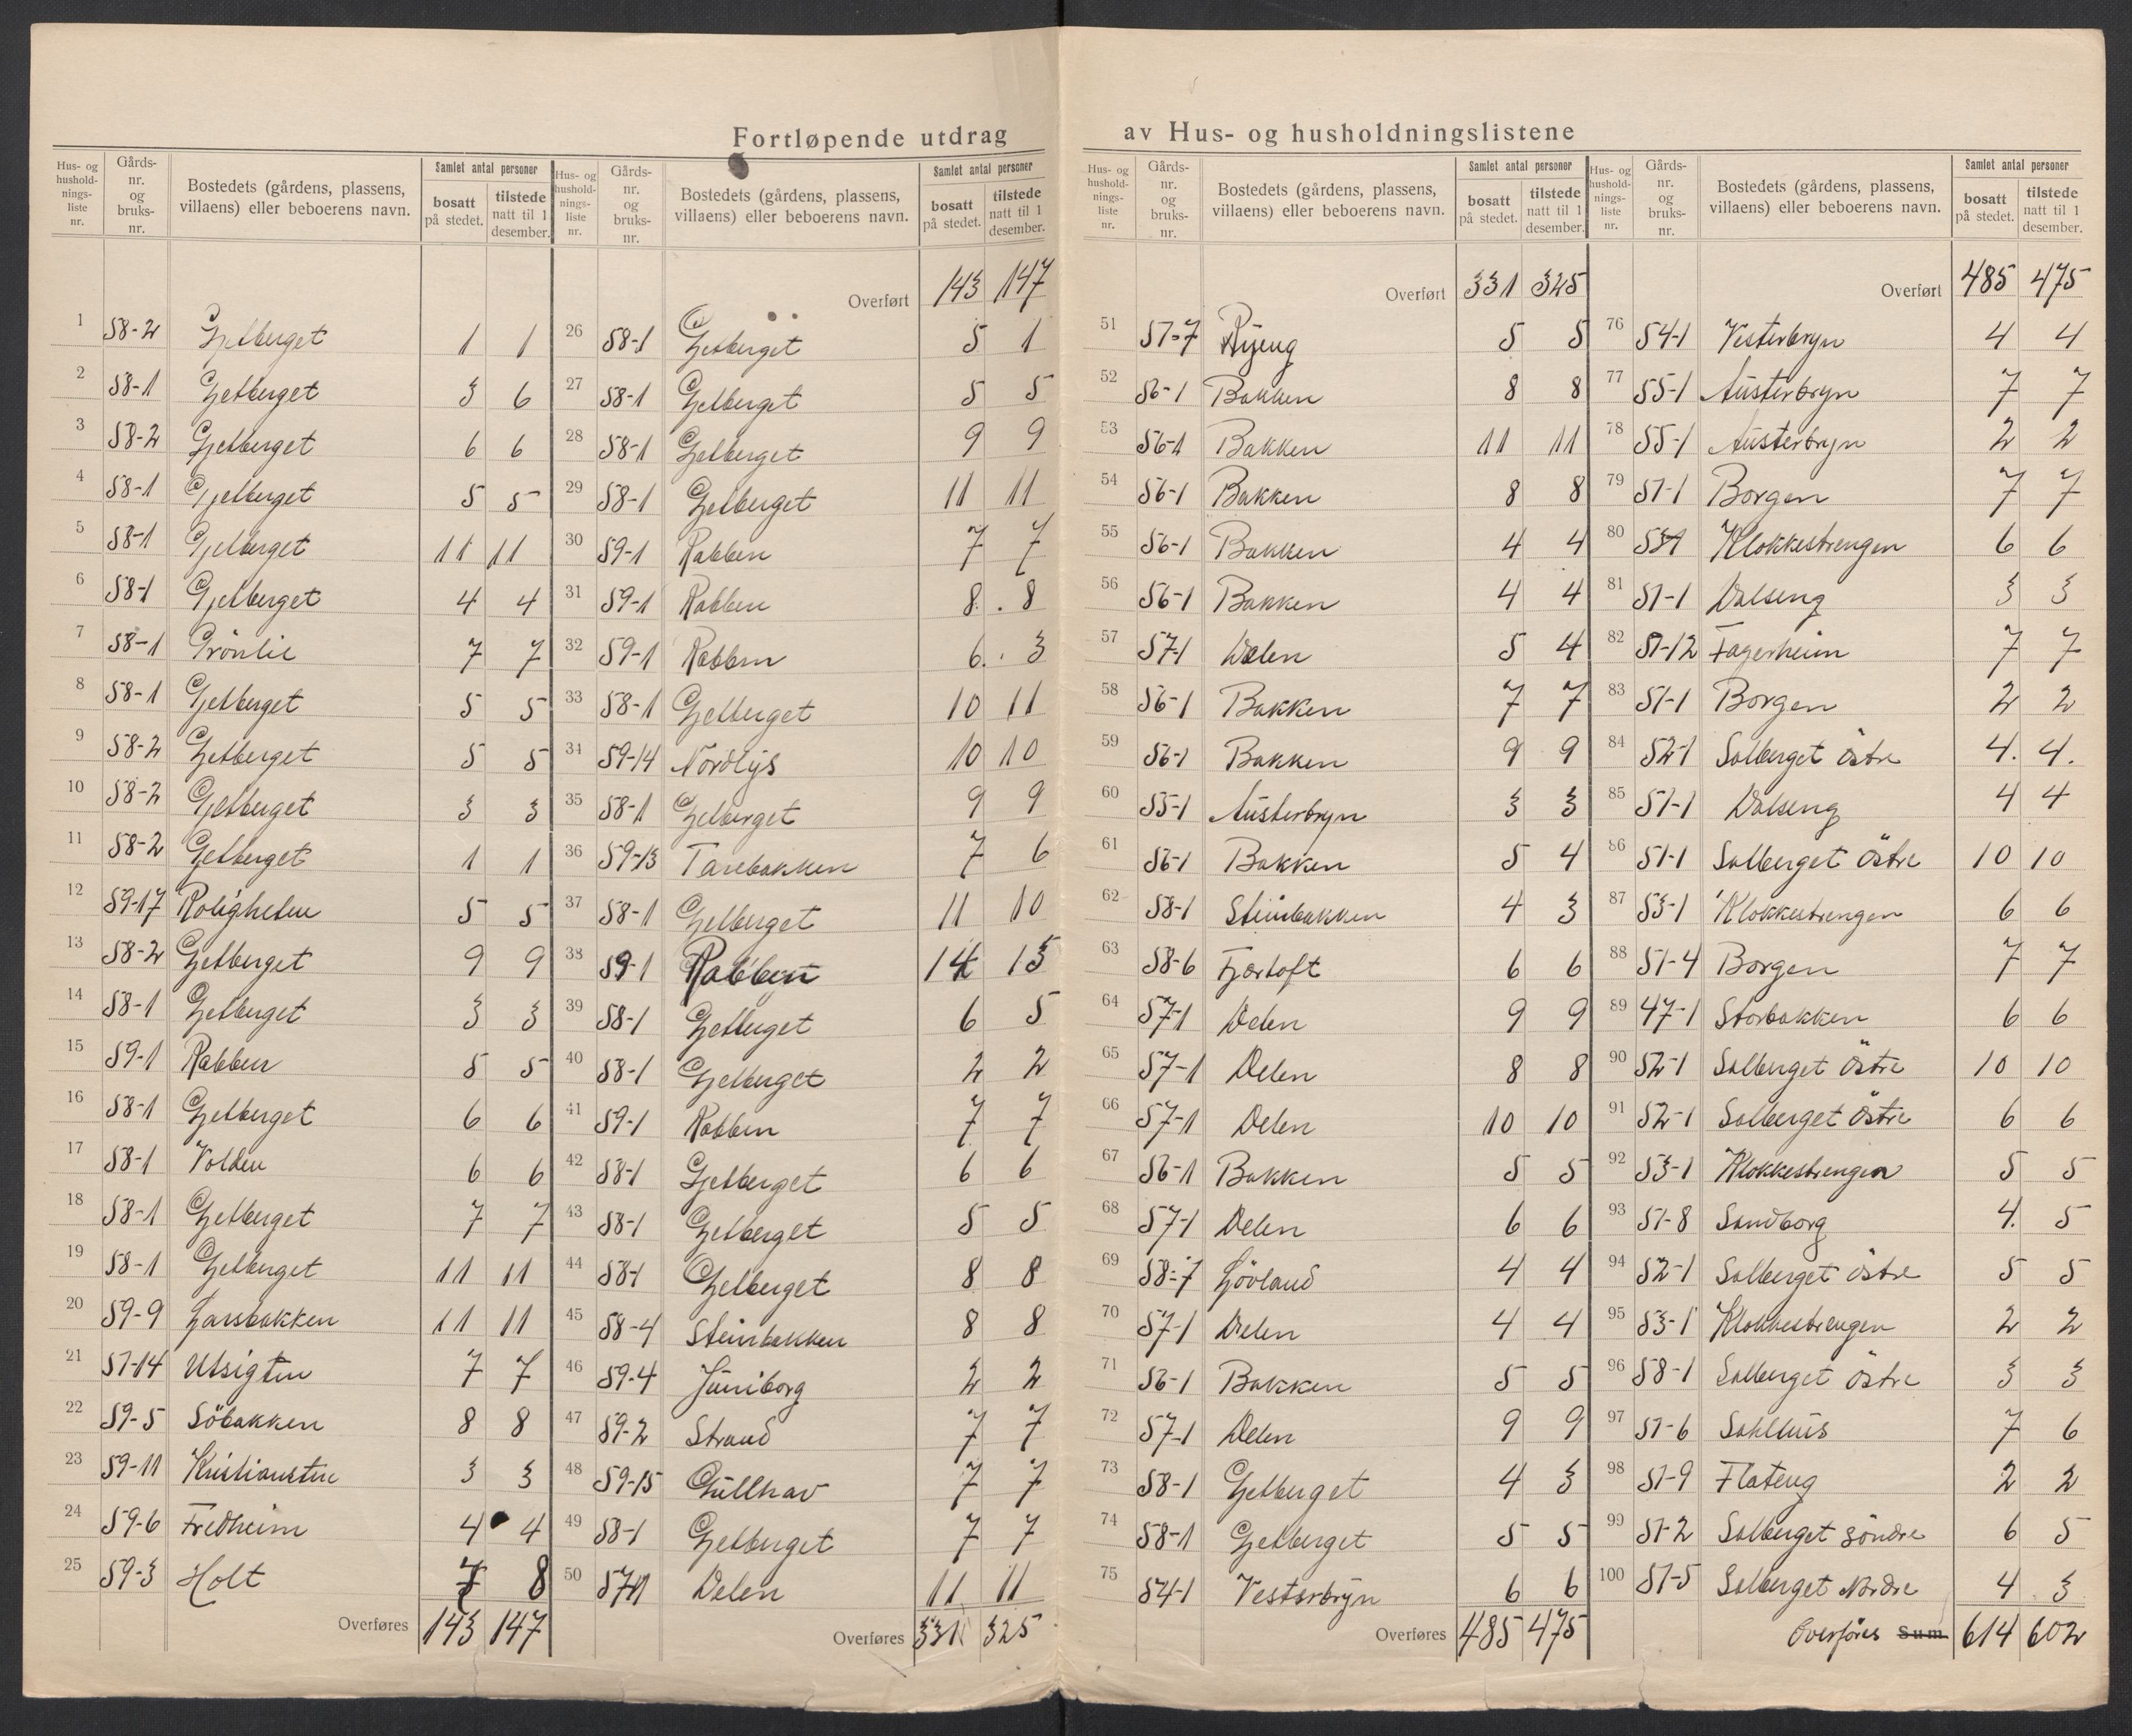 Fortløpende utdrag av Hus- og husholdningslistene
Hus- og hushold-nings-liste nr. Gårds-nr. og bruks-nr. Bostedets (gårdens, plassens, villaens) eller beboerens navn. Samlet antal personer bosatt på stedet. tilstede natt til 1 desember.
1 58-2 Gjetberget 1 1
2 58-1 Gjetberget 3 6
3 58-2 Gjetberget 6 6
4 58-1 Gjetberget 5 5
5 58-1 Gjetberget 11 11
6 58-1 Gjetberget 4 4
7 58-1 Grönlie 7 7
8 58-1 Gjetberget 5 5
9 58-2 Gjetberget 5 5
10 58-2 Gjetberget 3 3
11 58-2 Gjetberget 1 1
12 59-17 Roligheten 5 5
13 58-2 Gjetberget 9 9
14 58-1 Gjetberget 3 3
15 59-1 Rabben 5 5
16 58-1 Gjetberget 6 6
17 58-1 Volden 6 6
18 58-1 Gjetberget 7 7
19 58-1 Gjetberget 11 11
20 59-9 Larsbakken 11 11
21 57-14 Utsigten 7 7
22 59-5 Söbakken 8 8
23 59-11 Kristiansten 3 3
24 59-6 Fredheim 4 4
25 59-3 Holt 7 8
Overføres 143 147
Hus- og hushold-nings-liste nr. Gårds-nr. og bruks-nr. Bostedets (gårdens, plassens, villaens) eller beboerens navn. Samlet antal personer bosatt på stedet. tilstede natt til 1 desember.
Overført 143 147
26 58-1 Gjetberget 5 1
27 58-1 Gjetberget 5 5
28 58-1 Gjetberget 9 9
29 58-1 Gjetberget 11 11
30 59-1 Rabben 7 7
31 59-1 Rabben 8 8
32 59-1 Rabben 6 3
33 58-1 Gjetberget 10 11
34 59-14 Nordlys 10 10
35 58-1 Gjetberget 9 9
36 59-13 Tarebakken 7 6
37 58-1 Gjetberget 11 10
38 59-1 Rabben 14 13
39 58-1 Gjetberget 6 5
40 58-1 Gjetberget 2 2
41 59-1 Rabben 7 7
42 58-1 Gjetberget 6 6
43 58-1 Gjetberget 5 5
44 58-1 Gjetberget 8 8
45 58-4 Steinbakken 8 8
46 59-4 Juniborg 2 2
47 59-2 Strand 7 7
48 59-15 Gullhav 7 7
49 58-1 Gjetberget 7 7
50 57-1 Delen 11 11
Overføres 331 325
Hus- og hushold-nings-liste nr. Gårds-nr. og bruks-nr. Bostedets (gårdens, plassens, villaens) eller beboerens navn. Samlet antal personer bosatt på stedet. tilstede natt til 1 desember.
Overført 331 325
51 57-7 Ryeng 5 5
52 56-1 Bakken 8 8
53 56-1 Bakken 11 11
54 56-1 Bakken 8 8
55 56-1 Bakken 4 4
56 56-1 Bakken 4 4
57 57-1 Delen 5 4
58 56-1 Bakken 7 7
59 56-1 Bakken 9 9
60 55-1 Austerbryn 3 3
61 56-1 Bakken 5 4
62 58-1 Steinbakken 4 3
63 58-6 Fjærtoft 6 6
64 57-1 Delen 9 9
65 57-1 Delen 8 8
66 57-1 Delen 10 10
67 56-1 Bakken 5 5
68 57-1 Delen 6 6
69 58-7 Lövland 4 4
70 57-1 Delen 4 4
71 56-1 Bakken 5 5
72 57-1 Delen 9 9
73 58-1 Gjetberget 4 3
74 58-1 Gjetberget 5 5
75 54-1 Vesterbryn 6 6
Overføres 485 475
Hus- og hushold-nings-liste nr. Gårds-nr. og bruks-nr. Bostedets (gårdens, plassens, villaens) eller beboerens navn. Samlet antal personer bosatt på stedet. tilstede natt til 1 desember.
Overført 485 475
76 54-1 Vesterbryn 4 4
77 55-1 Austerbryn 7 7
78 55-1 Austerbryn 2 2
79 51-1 Borgen 7 7
80 53-1 Klokkestrengen 6 6
81 51-1 Dalseng 3 3
82 51-12 Fagerheim 7 7
83 51-1 Borgen 2 2
84 52-1 Solberget östre 4. 4.
85 51-1 Dalseng 4 4
86 51-1 Solberget östre 10 10
87 53-1 Klokkestrengen 6 6
88 51-4 Borgen 7 7
89 47-1 Storbakken 6 6
90 52-1 Solberget östre 10 10
91 52-1 Solberget östre 6 6
92 53-1 Klokkestrengen 5 5
93 51-8 Sandborg 4. 5
94 52-1 Solberget östre 5 5
95 53-1 Klokkestrengen 2 2
96 58-1 Solberget östre 3 3
97 51-6 Solhus 7 6
98 51-9 Flateng 2 2
99 51-2 Solberget söndre 6 5
100 51-5 Solberget Nordre 4 3
Overføres Sum 614 602